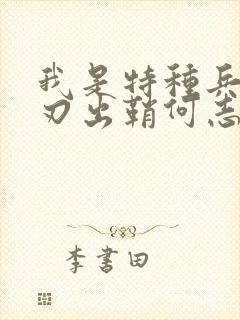 我是特種兵
刃出鞘何志
李書田